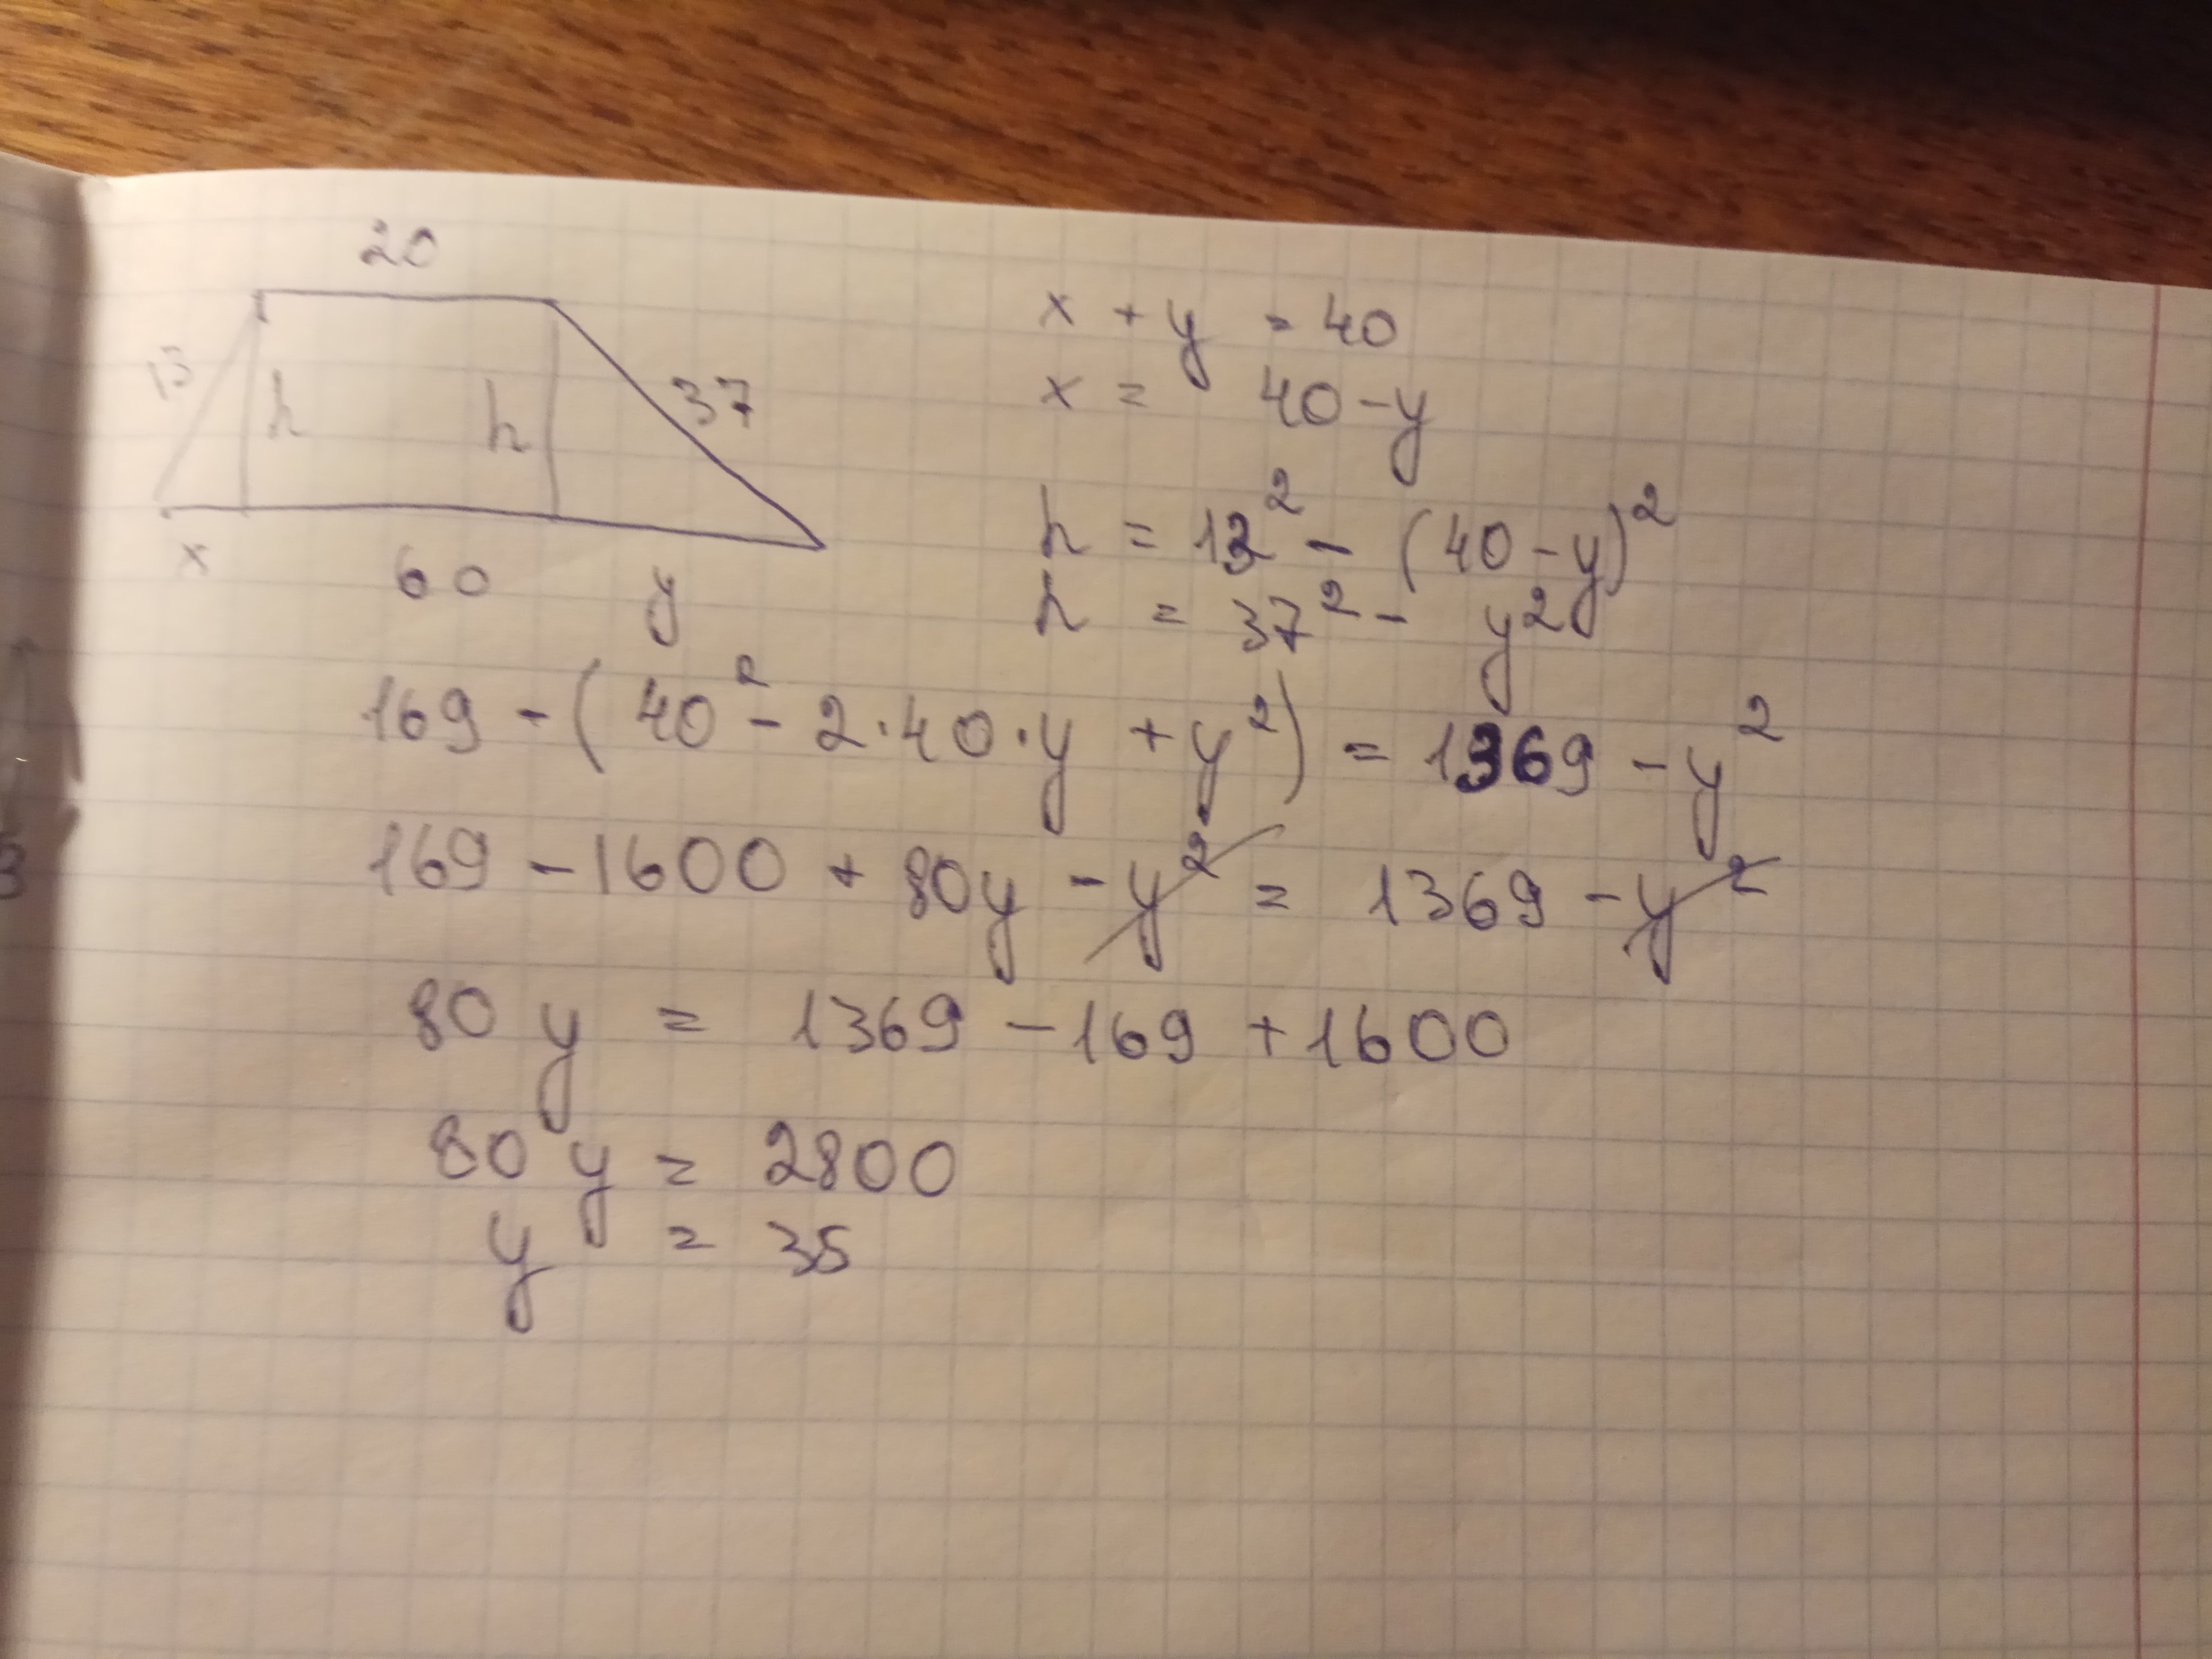 20
13
h
h
37
x
60
y
x + y = 40
x = 40 - y
h = 13² - (40 - y)²
h = 37² - y²
169 - (40² - 2·40·y + y²) = 1369 - y²
169 - 1600 + 80y - y² = 1369 - y²
80y = 1369 - 169 + 1600
80y = 2800
y = 35